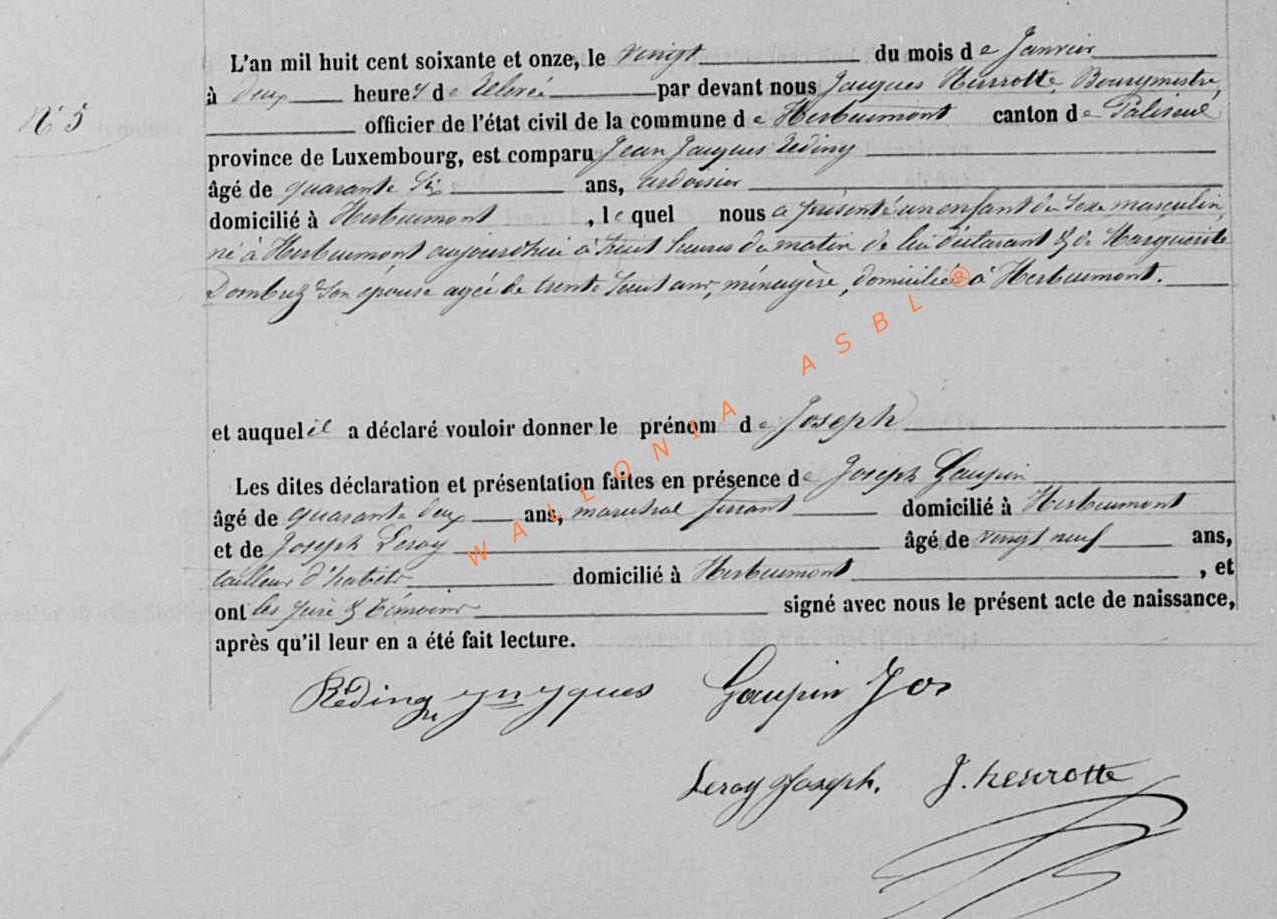 L'an mil huit cent soixante et onze, le vingt du mois de Janvier
à deux heures de relevée par devant nous Jacques Henrotte, Bourgmestre,
N° 5
officier de l'état civil de la commune de Herbeumont canton de Paliseul
province de Luxembourg, est comparu Jean Jacques Réding
âgé de quarante six ans, ardoisier
domicilié à Herbeumont, lequel nous a présenté un enfant du sexe masculin,
né à Herbeumont aujourd'hui à huit heures du matin de lui déclarant & de Marguerite
son épouse agée de trente huit ans, ménagère, domiciliée à Herbeumont.
et auquel il a déclaré vouloir donner le prénom de Joseph
Les dites déclaration et présentation faites en présence de Joseph Gaupin
âgé de quarante deux ans, maréchal ferrant domicilié à Herbeumont
et de Joseph Leroy âgé de vingt neuf ans,
tailleur d'habits domicilié à Herbeumont, et
ont les père & témoins signé avec nous le présent acte de naissance,
après qu'il leur en a été fait lecture.
Réding Jn Jques Gaupin Jos
Leroy Joseph. J. henrotte
WALLONIA ASBL®